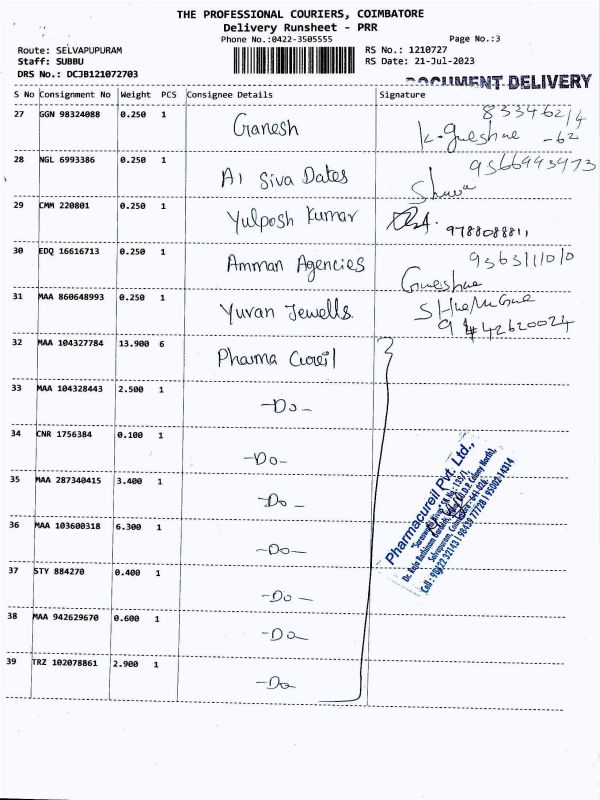 THE PROFESSIONAL COURIERS, COIMBATORE
Delivery Runsheet - PRR
Phone No.:0422-3505555 Page No.:3
Route: SELVAPUPURAM RS No.: 1210727
Staff: SUBBU RS Date: 21-Jul-2023
DRS No.: DCJB121072703
DOCUMENT DELIVERY
S No Consignment No Weight PCS Consignee Details Signature
27 GGN 98324088 0.250 1 Ganesh
28 NGL 6993386 0.250 1 A1 Siva Dates 9566493473
29 CMM 220801 0.250 1 Yulposh Kumar
30 EDQ 16616713 0.250 1 Amman Agencies
31 MAA 860648993 0.250 1 Yuvan Jewells
32 MAA 104327784 13.900 6 Pharma Cureil
33 MAA 104328443 2.500 1 -Do-
34 CNR 1756384 0.100 1 -Do-
35 MAA 287340415 3.400 1 -Do-
36 MAA 103600318 6.300 1 -Do-
37 STY 884270 0.400 1 -Do-
38 MAA 942629670 0.600 1 -Do-
39 TRZ 102078861 2.900 1 -Do-
Pharmacureil Pvt. Ltd.,